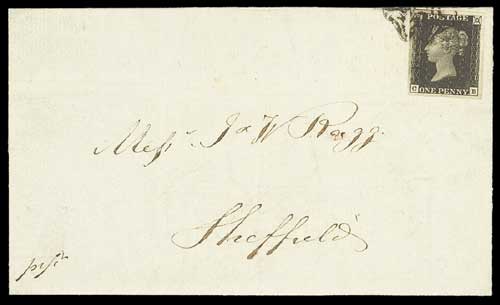 POSTAGE
ONE PENNY
Messrs. J & W Ragg.
Sheffield